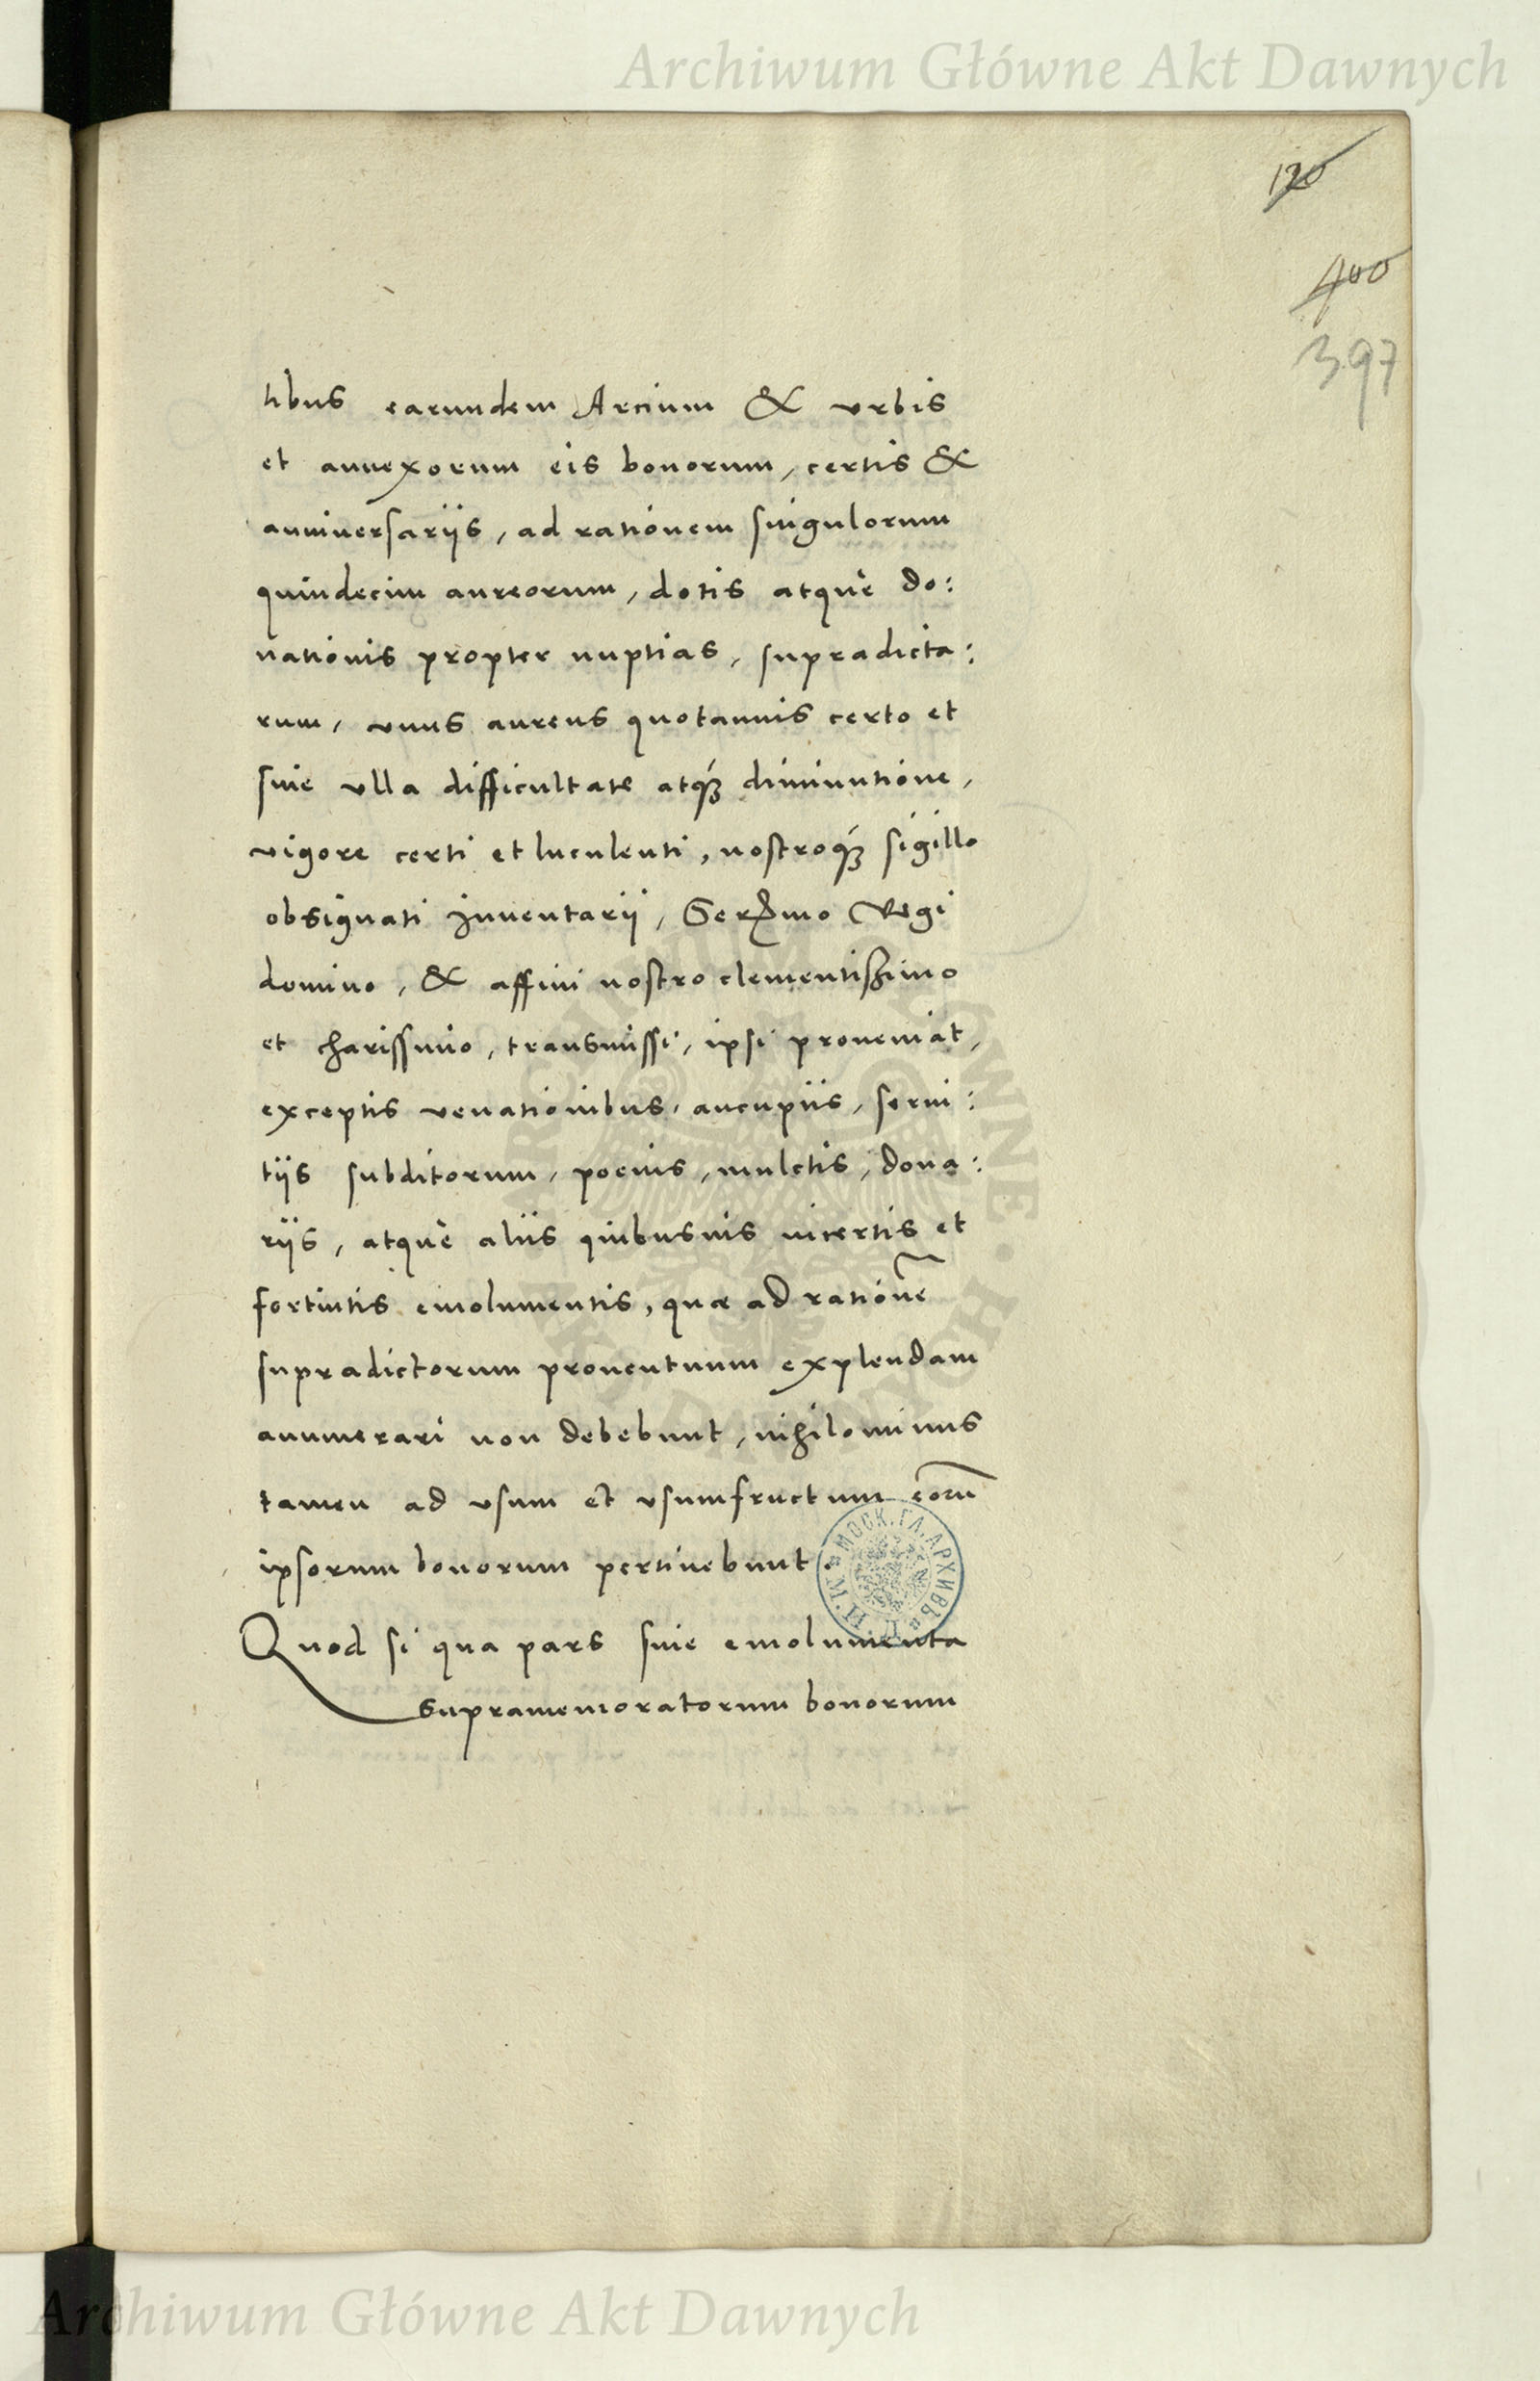 Archiwum Główne Akt Dawnych
120
400
397
tibus earundem Arcium & vrbis
et annexorum eis bonorum, certis &
anniuersarijs, ad rationem singulorum
quindecim aureorum, dotis atquè do:
nationis propter nuptias, supradicta:
rum, vnus aureus quotannis certo et
sine vlla difficultate atqꝫ diminutione,
vigore certi et luculenti, nostroqꝫ sigillo
obsignati Inuentarij, Serᵐᵒ Regi
domino, & affini nostro clementissimo
et charissimo, transmissi, ipsi proueniat,
exceptis venationibus, aucupiis, serui:
tiis subditorum, poenis, mulctis, dona:
rijs, atquè aliis quibusuis incertis et
fortuitis emolumentis, quæ ad rationē
supradictorum prouentuum explendam
annumerari non debebunt, nihilominus
tamen ad vsum et vsumfructum eorū
ipsorum bonorum pertinebunt.
МОСК. ГЛ. АРХИВЪ
Quod si qua pars siue emolumenta
supramemoratorum bonorum
Archiwum Główne Akt Dawnych